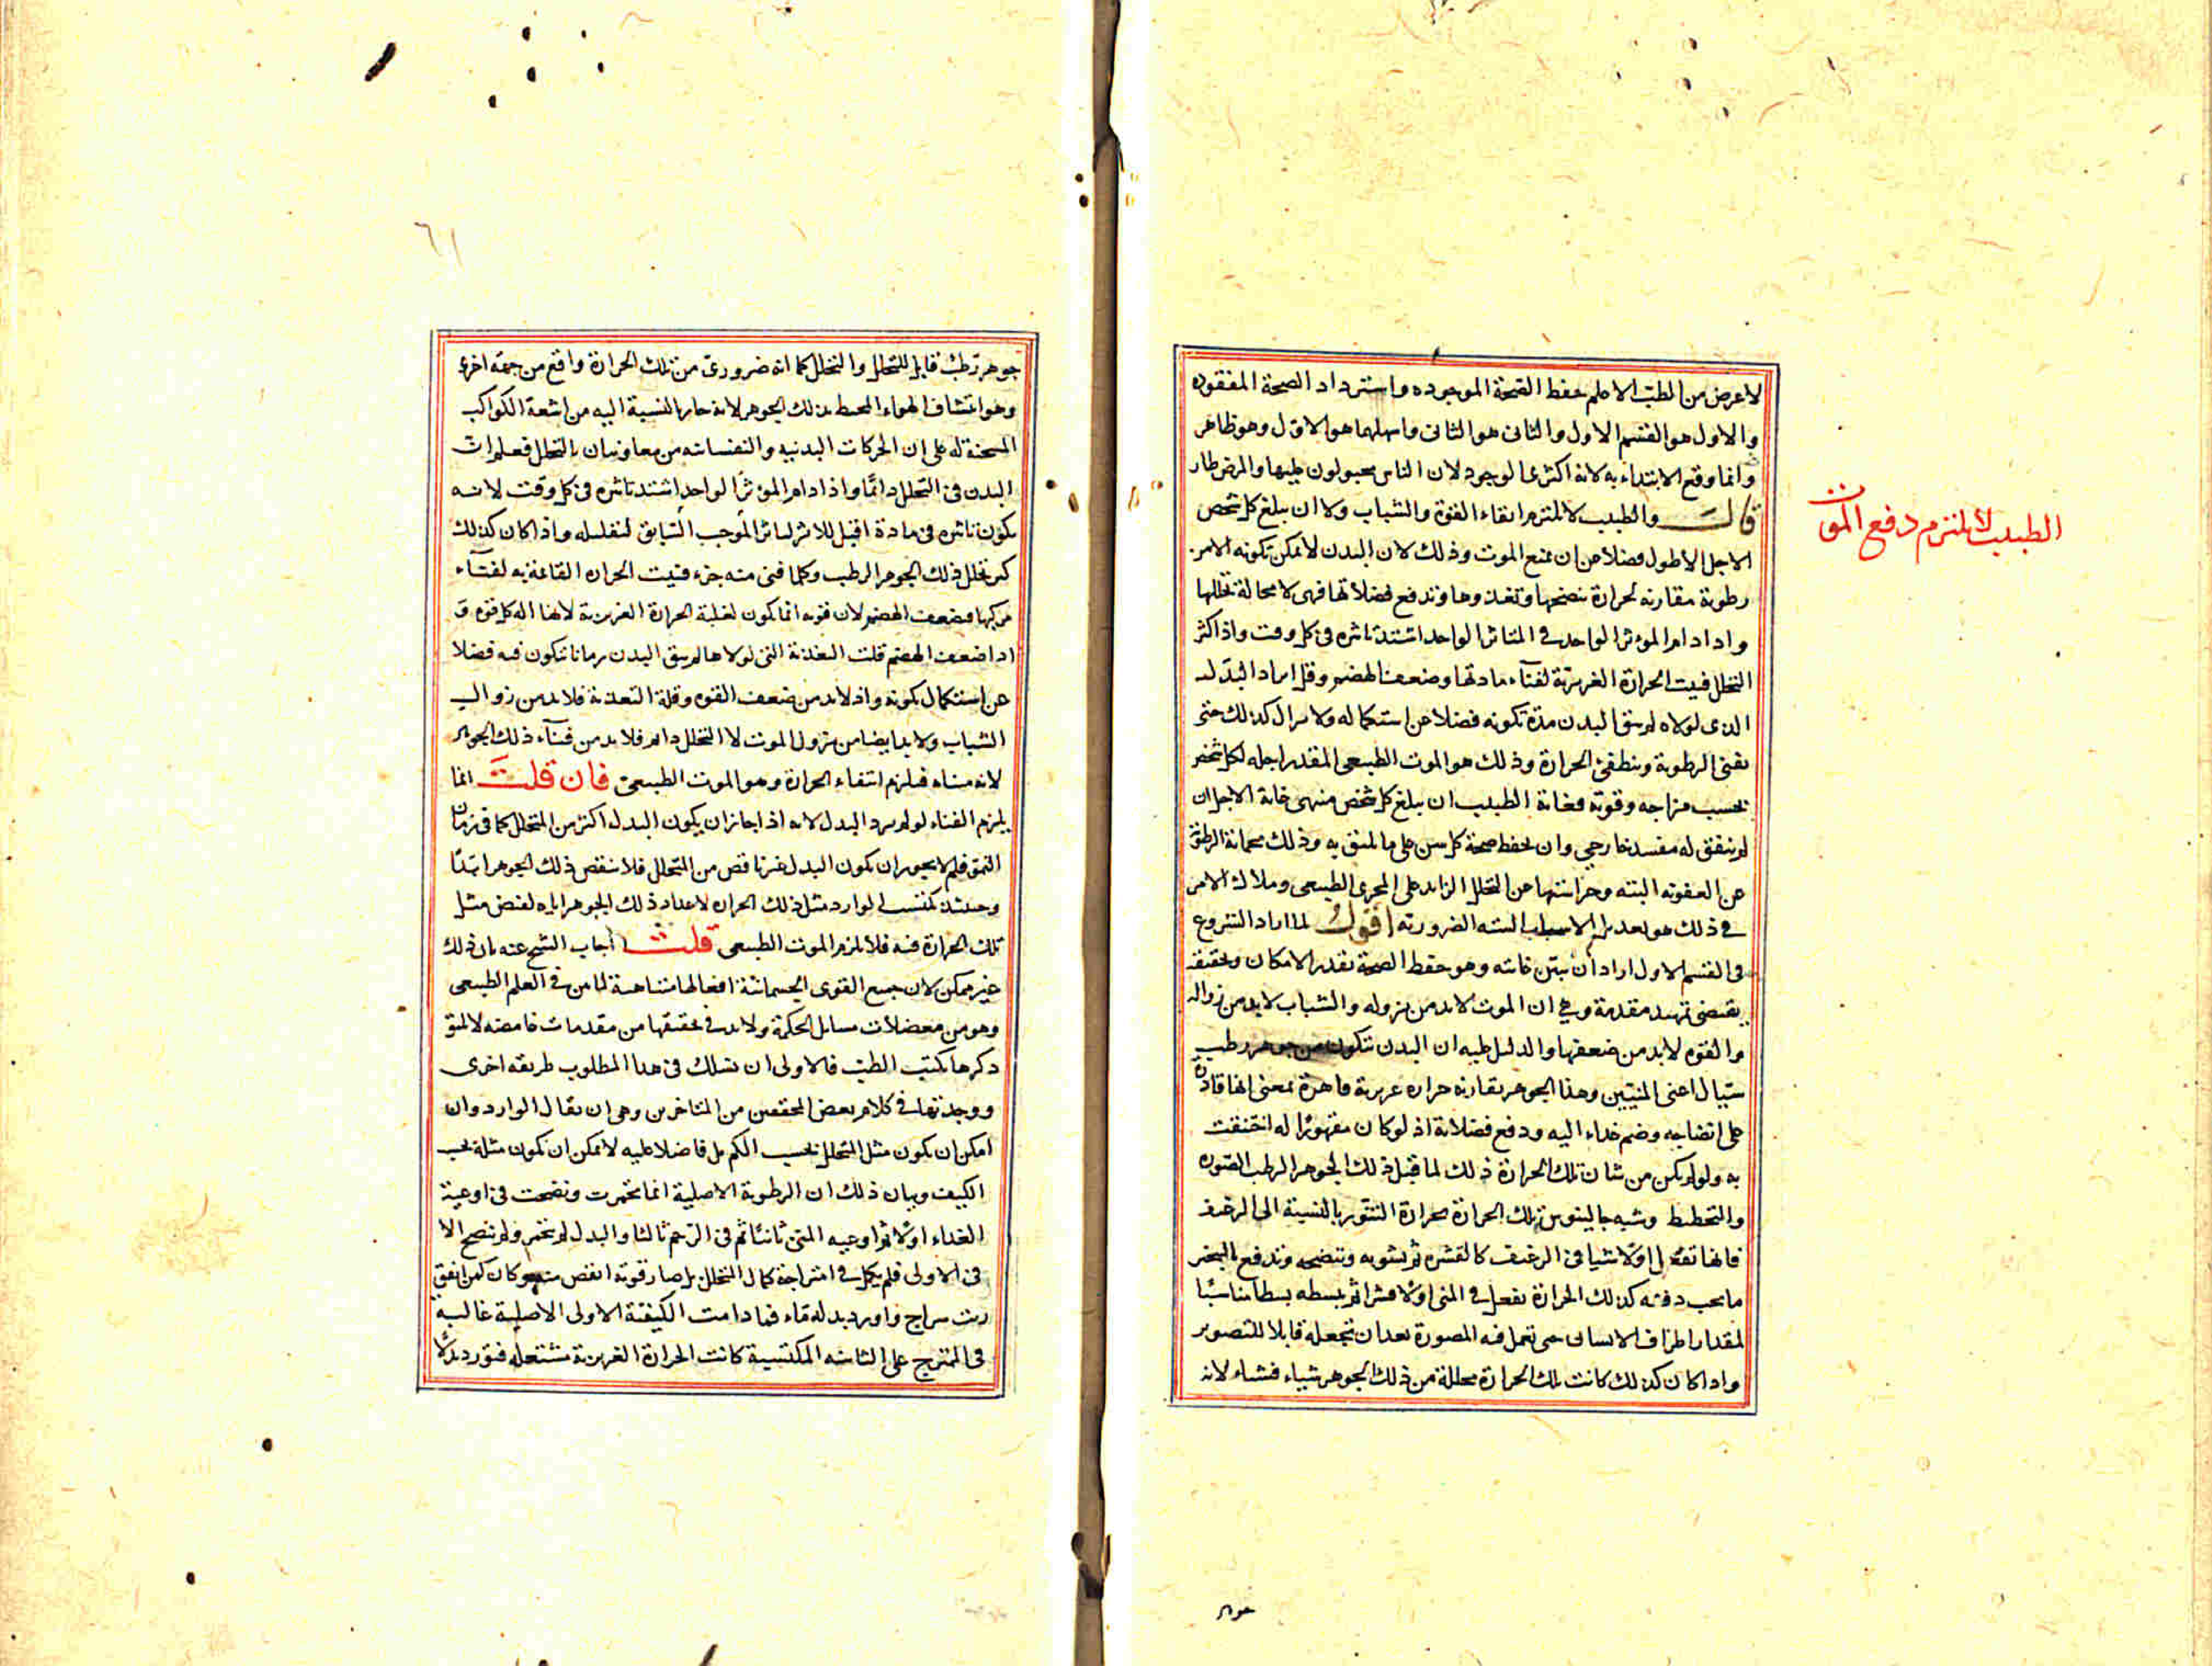 لا عرض من الطب الا حلم حفظ الصحة الموجوده واسترداد الصحة المفقوده
والاول هو القسم الاول والثانى هو الثانى واسهلهما هو الاول وهو ظاهر
وانما وقع الابتداء به لانه اكثرى الوجود لان الناس مجبولون عليها والمرض طار
قال والطبيب لا يلتزم ابقاء القوة والشباب ولا ان يبلغ كل شخص
الاجل الاطول فضلا عن ان يمنع الموت وذلك لان البدن لا يمكن تكونه الا من
رطوبة مقارنه لحرارة تنضجها وتغذوها وتدفع فضلاتها فهى لا محالة تحللها
واذا دام المؤثر الواحد فى المتاثر الواحد اشتد تاثيره فى كل وقت واذا كثر
التحلل فنيت الحرارة الغريزية لفناء مادتها وضعف الهضم وقل ايراد البدل
الذى لولاه لم يبق البدن مدة تكونه فضلا عن استكماله ولا يزال كذلك حتى
تفنى الرطوبة وتنطفئ الحرارة وذلك هو الموت الطبيعى المقدر اجله لكل شخص
بحسب مزاجه وقوته فغاية الطبيب ان يبلغ كل شخص منتهى غاية الاجل ان
لم يتفق له مفسد خارجى وان يحفظ صحة كل سن على ما يليق به وذلك بحماية الرطوبة
عن العفونه البتة وحراستها عن التحلل الزايد على المجرى الطبيعى وملاك الامر
فى ذلك هو تعديل الاسباب الستة الضرورية اقول لما اراد الشروع
فى القسم الاول اراد ان يبين غايته وهو حفظ الصحة بقدر الامكان وتحقيقه
يقتضى تمهيد مقدمة وهى ان الموت لا بد من نزوله والشباب لا بد من زواله
والقوه لا بد من ضعفها والدليل عليه ان البدن تتكون من جوهر رطب
سيال اعنى المنيين وهذا الجوهر يقارنه حرارة غريزية قاهرة بمعنى انها قادرة
على انضاجه وضم غذاء اليه ودفع فضلاته اذ لو كان مقهورا له انخنقت
به ولو لم يكن من شان تلك الحرارة ذلك لما قبل ذلك الجوهر الرطب الصوره
والتخطيط وشبه جالينوس تلك الحرارة بحرارة التنور بالنسبة الى الرغيف
فانها تفعل اولا شيا فى الرغيف كالقشره ثم يشويه وتنضجه وتدفع البخر
ما يجب دفعه كذلك الحرارة تفعل فى المنى اولا قشرا ثم تبسطه بسطا مناسبا
لمقدار اطراف الانسان حتى تعمل فيه المصورة بعد ان تجعله قابلا للتصوير
واذا كان كذلك كانت تلك الحرارة محللة من ذلك الجوهر شياء فشياء لانه
جوهر
الطبيب لا يلتزم دفع الموت
٦١
جوهر رطب قابل للتحلل والتحلل كما انه ضرورى من تلك الحرارة واقع من جهة اخرى
وهو انتشاف الهواء المحيط بذلك الجوهر لانه حار بالنسبة اليه من اشعة الكواكب
المسخنة له على ان الحركات البدنيه والنفسانيه من معاونان بالتحلل فعلم ان
البدن فى التحلل دائما واذا دام المؤثر الواحد اشتد تاثيره فى كل وقت لانه
يكون تاثيره فى مادة اقبل للاثر لتاثر الموجب السابق لتقليله واذا كان كذلك
كثر تحلل ذلك الجوهر الرطب وكلما فنى منه جزء فنيت الحراره القائمة به لفناء
مركبها فضعف الهضم لان قوته انما يكون لغلبة الحرارة الغريزية لانها اله كل قوه و
اذا ضعف الهضم قلت التغذية التى لولاها لم يبق البدن زمانا تتكون فيه فضلا
عن استكمال تكونه واذ لا بد من ضعف القوه وقلة التغذية فلا بد من زوال
الشباب ولا بد ايضا من نزول الموت لان التحلل دائم فلا بد من فناء ذلك الجوهر
لانه متناه فيلزم انتفاء الحرارة وهو الموت الطبيعى فان قلت انما
يلزم الفناء لو لم يرد البدل لانه اذا جاز ان يكون البدل اكثر من المتحلل كما فى زمان
النمو فلم لا يجوز ان يكون البدل غير ناقص من التحلل فلا ينقص ذلك الجوهر ابدا
وحينئذ يكتسب الوارد مثل ذلك الحراره لاعداد ذلك الجوهر اياه لفيض مثل
تلك الحرارة فيه فلا يلزم الموت الطبيعى قلت اجاب الشيخ عنه بان ذلك
غير ممكن لان جميع القوى الجسمانية افعالها متناهية لما من فى العلم الطبيعى
وهو من معضلات مسايل الحكمة ولا بد فى تحقيقها من مقدمات غامضه لا يليق
ذكرها بكتب الطب فالاولى ان نسلك فى هذا المطلوب طريقه اخرى
ووجدتها فى كلام بعض المحققين من المتاخرين وهى ان يقال الوارد وان
امكن ان يكون مثل المتحلل بحسب الكم بل فاضلا عليه لا يمكن ان تكون مثله بحسب
الكيف وبيان ذلك ان الرطوبة الاصلية انما تخمرت ونضجت فى اوعية
الغذاء اولا ثم اوعيه المنى ثانيا ثم فى الرحم ثالثا والبدل لم يتخمر ولم ينضج الا
فى الاولى فلم يكمل فى امتزاجه كمال المتحلل بل صار قوته انقص منه وكان كمن انفق
زيت سراج واورد بدله ماء فما دامت الكيفية الاولى الاصلية غالبة
فى الممتزج على الثانيه المكتسبة كانت الحرارة الغريزية مشتعله فتورد بدلا